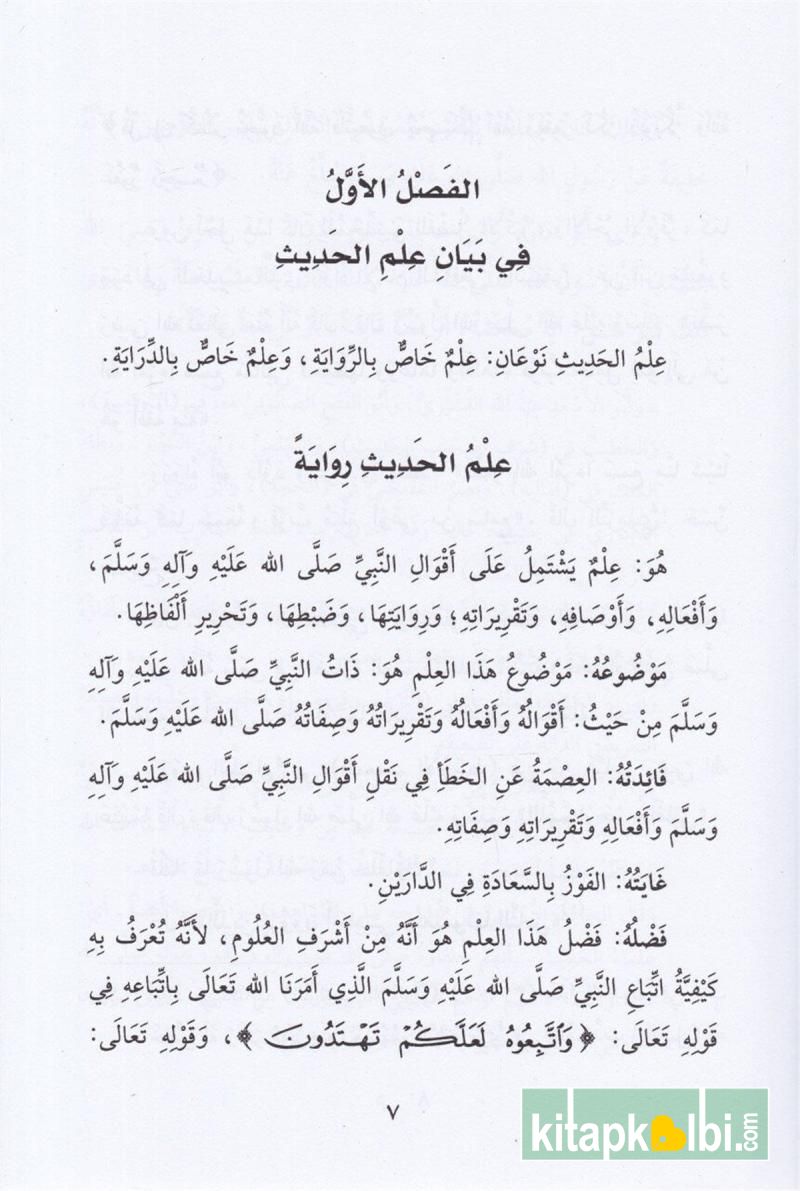 الفَصْلُ الأَوَّلُ
فِي بَيَانِ عِلْمِ الحَدِيثِ
عِلْمُ الحَدِيثِ نَوْعَانِ: عِلْمٌ خَاصٌّ بِالرِّوَايَةِ، وَعِلْمٌ خَاصٌّ بِالدِّرَايَةِ.
عِلْمُ الحَدِيثِ رِوَايَةً
هُوَ: عِلْمٌ يَشْتَمِلُ عَلَى أَقْوَالِ النَّبِيِّ صَلَّى الله عَلَيْهِ وَآلِهِ وَسَلَّمَ،
وَأَفْعَالِهِ، وَأَوْصَافِهِ، وَتَقْرِيرَاتِهِ؛ وَرِوَايَتِهَا، وَضَبْطِهَا، وَتَحْرِيرِ أَلْفَاظِهَا.
مَوْضُوعُهُ: مَوْضُوعُ هَذَا العِلْمِ هُوَ: ذَاتُ النَّبِيِّ صَلَّى الله عَلَيْهِ وَآلِهِ
وَسَلَّمَ مِنْ حَيْثُ: أَقْوَالُهُ وَأَفْعَالُهُ وَتَقْرِيرَاتُهُ وَصِفَاتُهُ صَلَّى الله عَلَيْهِ وَسَلَّمَ.
فَائِدَتُهُ: العِصْمَةُ عَنِ الخَطَأِ فِي نَقْلِ أَقْوَالِ النَّبِيِّ صَلَّى الله عَلَيْهِ وَآلِهِ
وَسَلَّمَ وَأَفْعَالِهِ وَتَقْرِيرَاتِهِ وَصِفَاتِهِ.
غَايَتُهُ: الفَوْزُ بِالسَّعَادَةِ فِي الدَّارَيْنِ.
فَضْلُهُ: فَضْلُ هَذَا العِلْمِ هُوَ أَنَّهُ مِنْ أَشْرَفِ العُلُومِ، لأَنَّهُ تُعْرَفُ بِهِ
كَيْفِيَّةُ اتِّبَاعِ النَّبِيِّ صَلَّى الله عَلَيْهِ وَسَلَّمَ الَّذِي أَمَرَنَا الله تَعَالَى بِاتِّبَاعِهِ فِي
قَوْلِهِ تَعَالَى: ﴿وَاتَّبِعُوهُ لَعَلَّكُمْ تَهْتَدُونَ﴾، وَقَوْلِهِ تَعَالَى:
٧
kitapkalbi.com